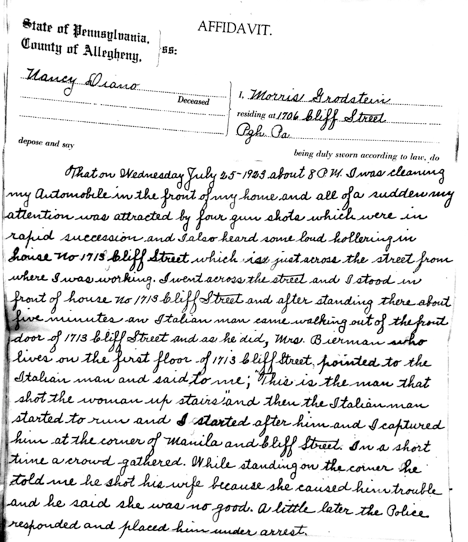 AFFIDAVIT.
State of Pennsylvania,
County of Allegheny,
ss:
Nancy Diano
Deceased
I, Morris Grodstein
residing at 1706 Cliff Street
Pgh. Pa
being duly sworn according to law, do
depose and say
That on Wednesday July 25-1923 about 8 P.M. I was cleaning
my Automobile in the front of my home and all of a sudden my
attention was attracted by four gun shots which were in
rapid succession and I also heard some loud hollering in
house No 1713 Cliff Street which is just across the street from
where I was working. I went across the street and I stood in
front of house No 1713 Cliff Street and after standing there about
five minutes an Italian man came walking out of the front
door of 1713 Cliff Street and as he did, Mrs. Bierman who
lives on the first floor of 1713 Cliff Street, pointed to the
Italian man and said to me; "This is the man that
shot the woman up stairs" and then the Italian man
started to run and I started after him and I captured
him at the corner of Manila and Cliff Street. In a short
time a crowd gathered. While standing on the corner he
told me he shot his wife because she caused him trouble
and he said she was no good. A little later the Police
responded and placed him under arrest.